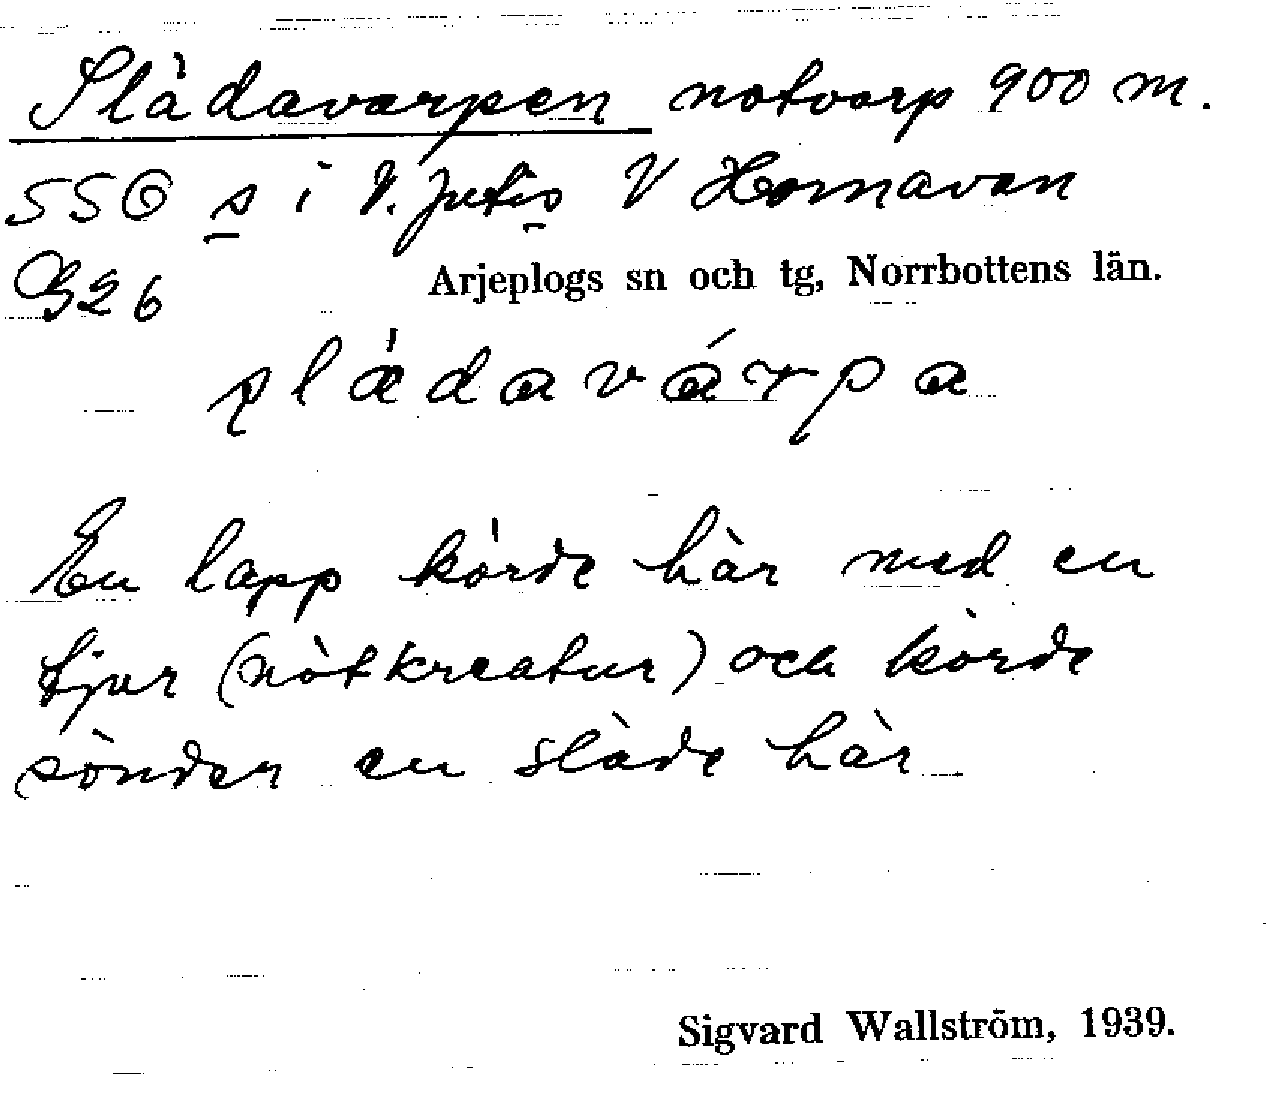 Slädavarpen notvarp 900 m.
SSO s i V. Jutis V Hornavan
G26
Arjeplogs sn och tg, Norrbottens län.
slädavárpa
En lapp körde här med en
tjur (nötkreatur) och körde
sönder en släde här
Sigvard Wallström, 1939.